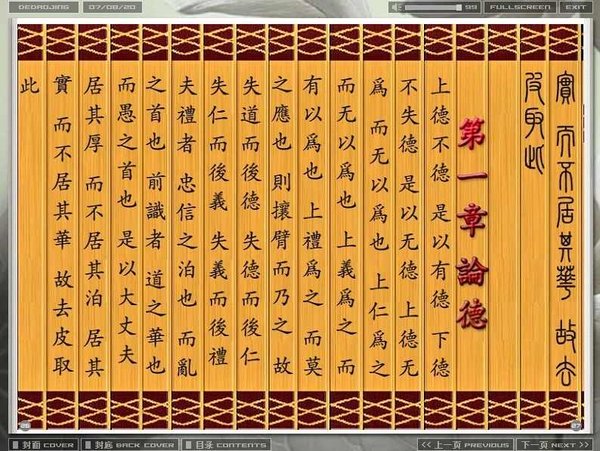 DEDAOJING 07/08/20 99 FULLSCREEN EXIT
實 而不居其華 故去
皮取此
第一章論德
上德不德 是以有德 下德
不失德 是以无德 上德无
爲 而无以爲也 上仁爲之
而无以爲也 上義爲之 而
有以爲也 上禮爲之 而莫
之應也 則攘臂而乃之 故
失道而後德 失德而後仁
失仁而後義 失義而後禮
夫禮者 忠信之泊也 而亂
之首也 前識者 道之華也
而愚之首也 是以大丈夫
居其厚 而不居其泊 居其
實 而不居其華 故去皮取
此
封面 COVER 封底 BACK COVER 目录 CONTENTS << 上一页 PREVIOUS 下一页 NEXT >>